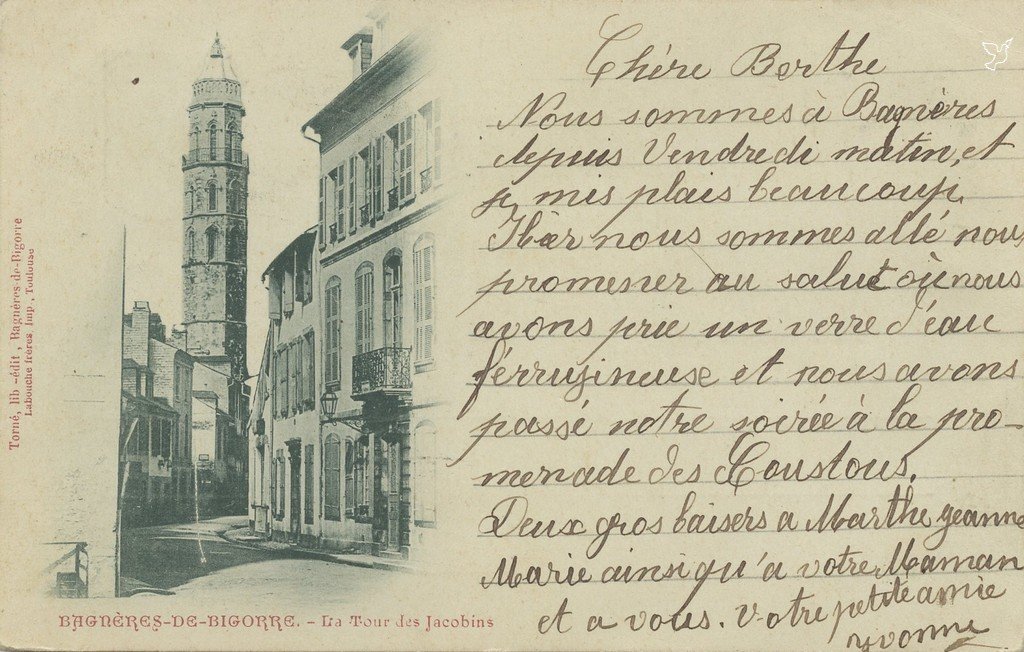 Torné, lib-édit, Bagnères-de-Bigorre
Labouche frères Imp., Toulouse
BAGNÈRES-DE-BIGORRE. - La Tour des Jacobins
Chère Berthe
Nous sommes à Bagnères
depuis Vendredi matin, et
je mis plais beaucoup.
Hier nous sommes allé nous
promener au salut où nous
avons prie un verre d'eau
férrugineuse et nous avons
passé notre soirée à la pro-
menade des Coustous.
Deux gros baisers a Marthe geanne
Marie ainsi qu'a votre Maman
et a vous. Votre petite amie
yvonne